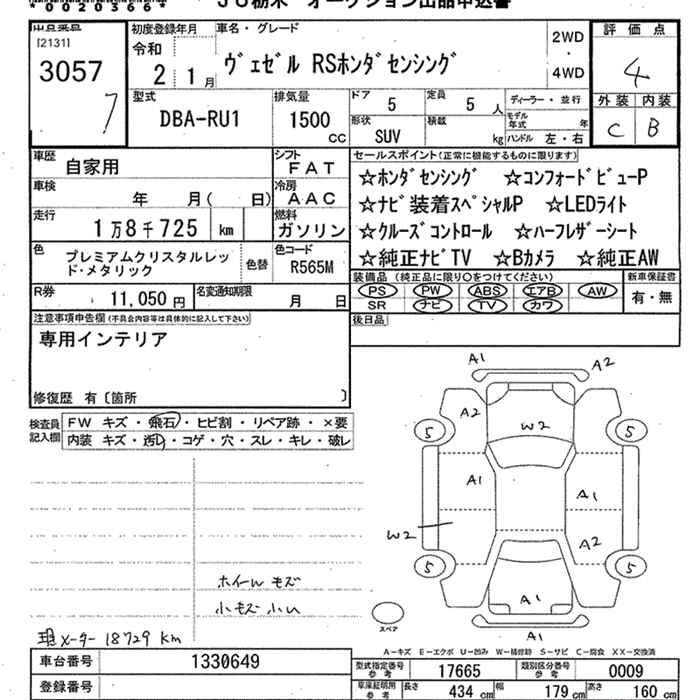 *0020366*
JU栃木 オークション出品申込書
出品番号
[2131]
3057
7
初度登録年月
令和
2年1月
車名・グレード
ヴェゼル RSホンダセンシング
2WD
・
4WD
評価点
4
外装 内装
C B
型式
DBA-RU1
排気量
1500
CC
ドア 5
定員 5 人
形状
SUV
積載 kg
ディーラー・並行
モデル年式 年
ハンドル 左・右
車歴
自家用
シフト
FAT
車検
年 月( 日)
冷房
AAC
走行
1万8千725 km
燃料
ガソリン
色
プレミアムクリスタルレッ
ド・メタリック
色替
色コード
R565M
R券
11,050 円
名変通知期限
月 日
セールスポイント(正常に機能するものに限ります)
☆ホンダセンシング ☆コンフォードビューP
☆ナビ装着スペシャルP ☆LEDライト
☆クルーズコントロール ☆ハーフレザーシート
☆純正ナビTV ☆Bカメラ ☆純正AW
装備品(純正品に限り○をつけてください)
PS PW ABS エアB AW
SR ナビ TV カワ
新車保証書
有・無
後日品
注意事項申告欄(不具合内容等は具体的に記入して下さい)
専用インテリア
修復歴 有〔箇所 〕
検査員
記入欄
FW キズ・飛石・ヒビ割・リペア跡・×要
内装 キズ・汚レ・コゲ・穴・スレ・キレ・破レ
A1
A2
A2
W2
5
5
A1
A1
W2
A2
5
5
A1
A1
ホイールキズ
小キズ 小凹
スペア
現メーター 18729 km
A-キズ E-エクボ U-凹み W-補修跡 S-サビ C-腐食 XX-交換済
車台番号
1330649
登録番号
型式指定番号
参考
17665
類別区分番号
参考
0009
車庫証明用
参考
長さ 434 cm
幅 179 cm
高さ 160 cm